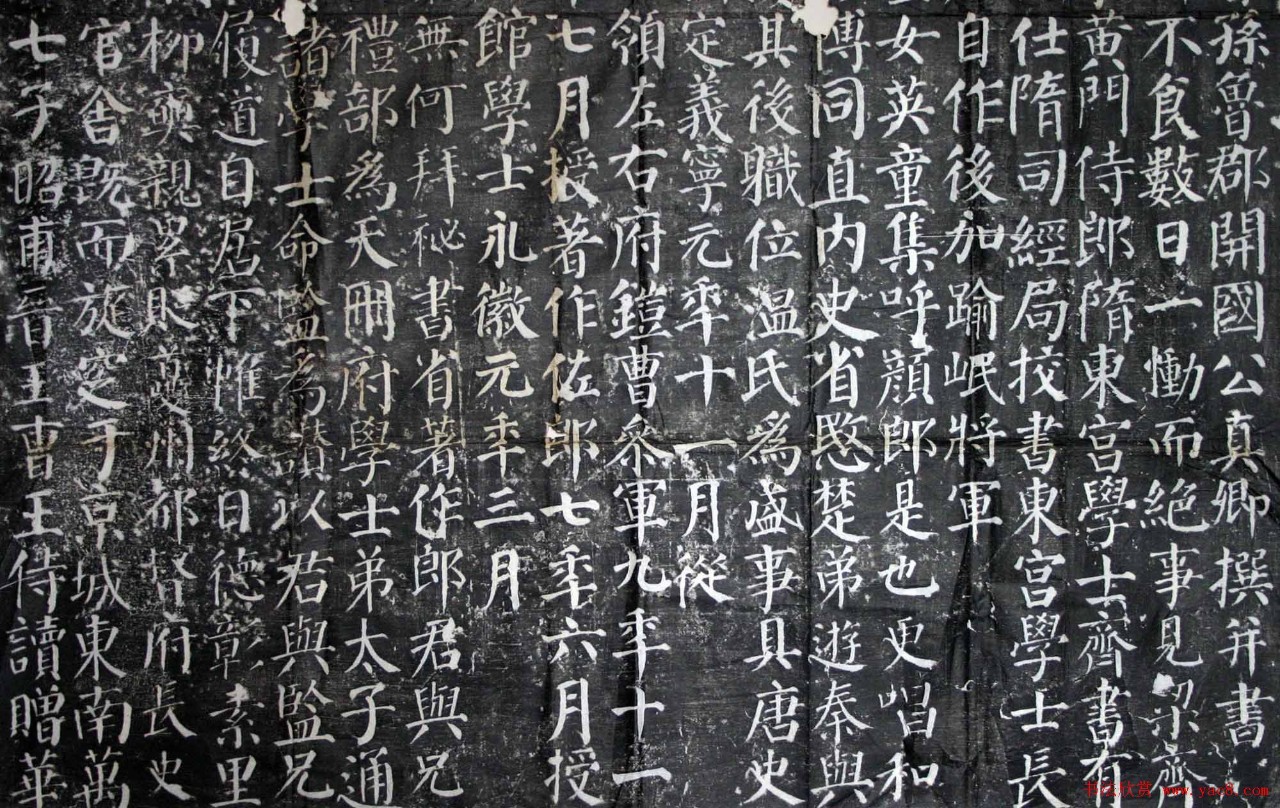 孫魯郡開國公真卿撰并書
不食數日一慟而絕事見梁齊
黃門侍郎隋東宮學士齊書有
仕隋司經局校書東宮學士長
自作後加踰岷將軍
女英童集呼顏郎是也更唱和
博同直內史省愍楚弟遊秦與
具後職位溫氏爲盛事具唐史
定義寧元年十一月從
領左右府鎧曹參軍九年十一
七月授著作佐郎七年六月授
館學士永徽元年三月
無何拜祕書省著作郎君與兄
禮部爲天冊府學士弟太子通
諸學士命監爲讚以君與監兄
履道自居下帷終日德彰素里
柳奭親累貶夔州都督府長史
官舍既而旋窆于京城東南萬
七子昭甫晉王曹王侍讀贈華
书法欣赏 www.yac8.com